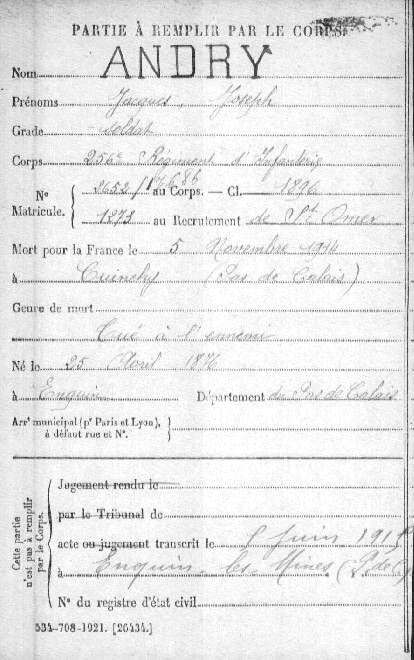 PARTIE À REMPLIR PAR LE CORPS.
Nom ANDRY
Prénoms Jacques, Joseph
Grade soldat
Corps 256e Régiment d'Infanterie
N° Matricule. 2652/ au Corps. — Cl. 1896
1273 au Recrutement de St Omer
Mort pour la France le 5 Novembre 1914
à Cuinchy (Pas de Calais)
Genre de mort
Tué à l'ennemi
Né le 25 Août 1876
à Enquin Département du Pas de Calais
Arrt municipal (pr Paris et Lyon),
à défaut rue et N°.
Cette partie n'est pas à remplir par le Corps.
Jugement rendu le
par le Tribunal de
acte ou jugement transcrit le Juin
à Enquin-les-Mines (P. de C)
N° du registre d'état civil
534-708-1921. [26434.]